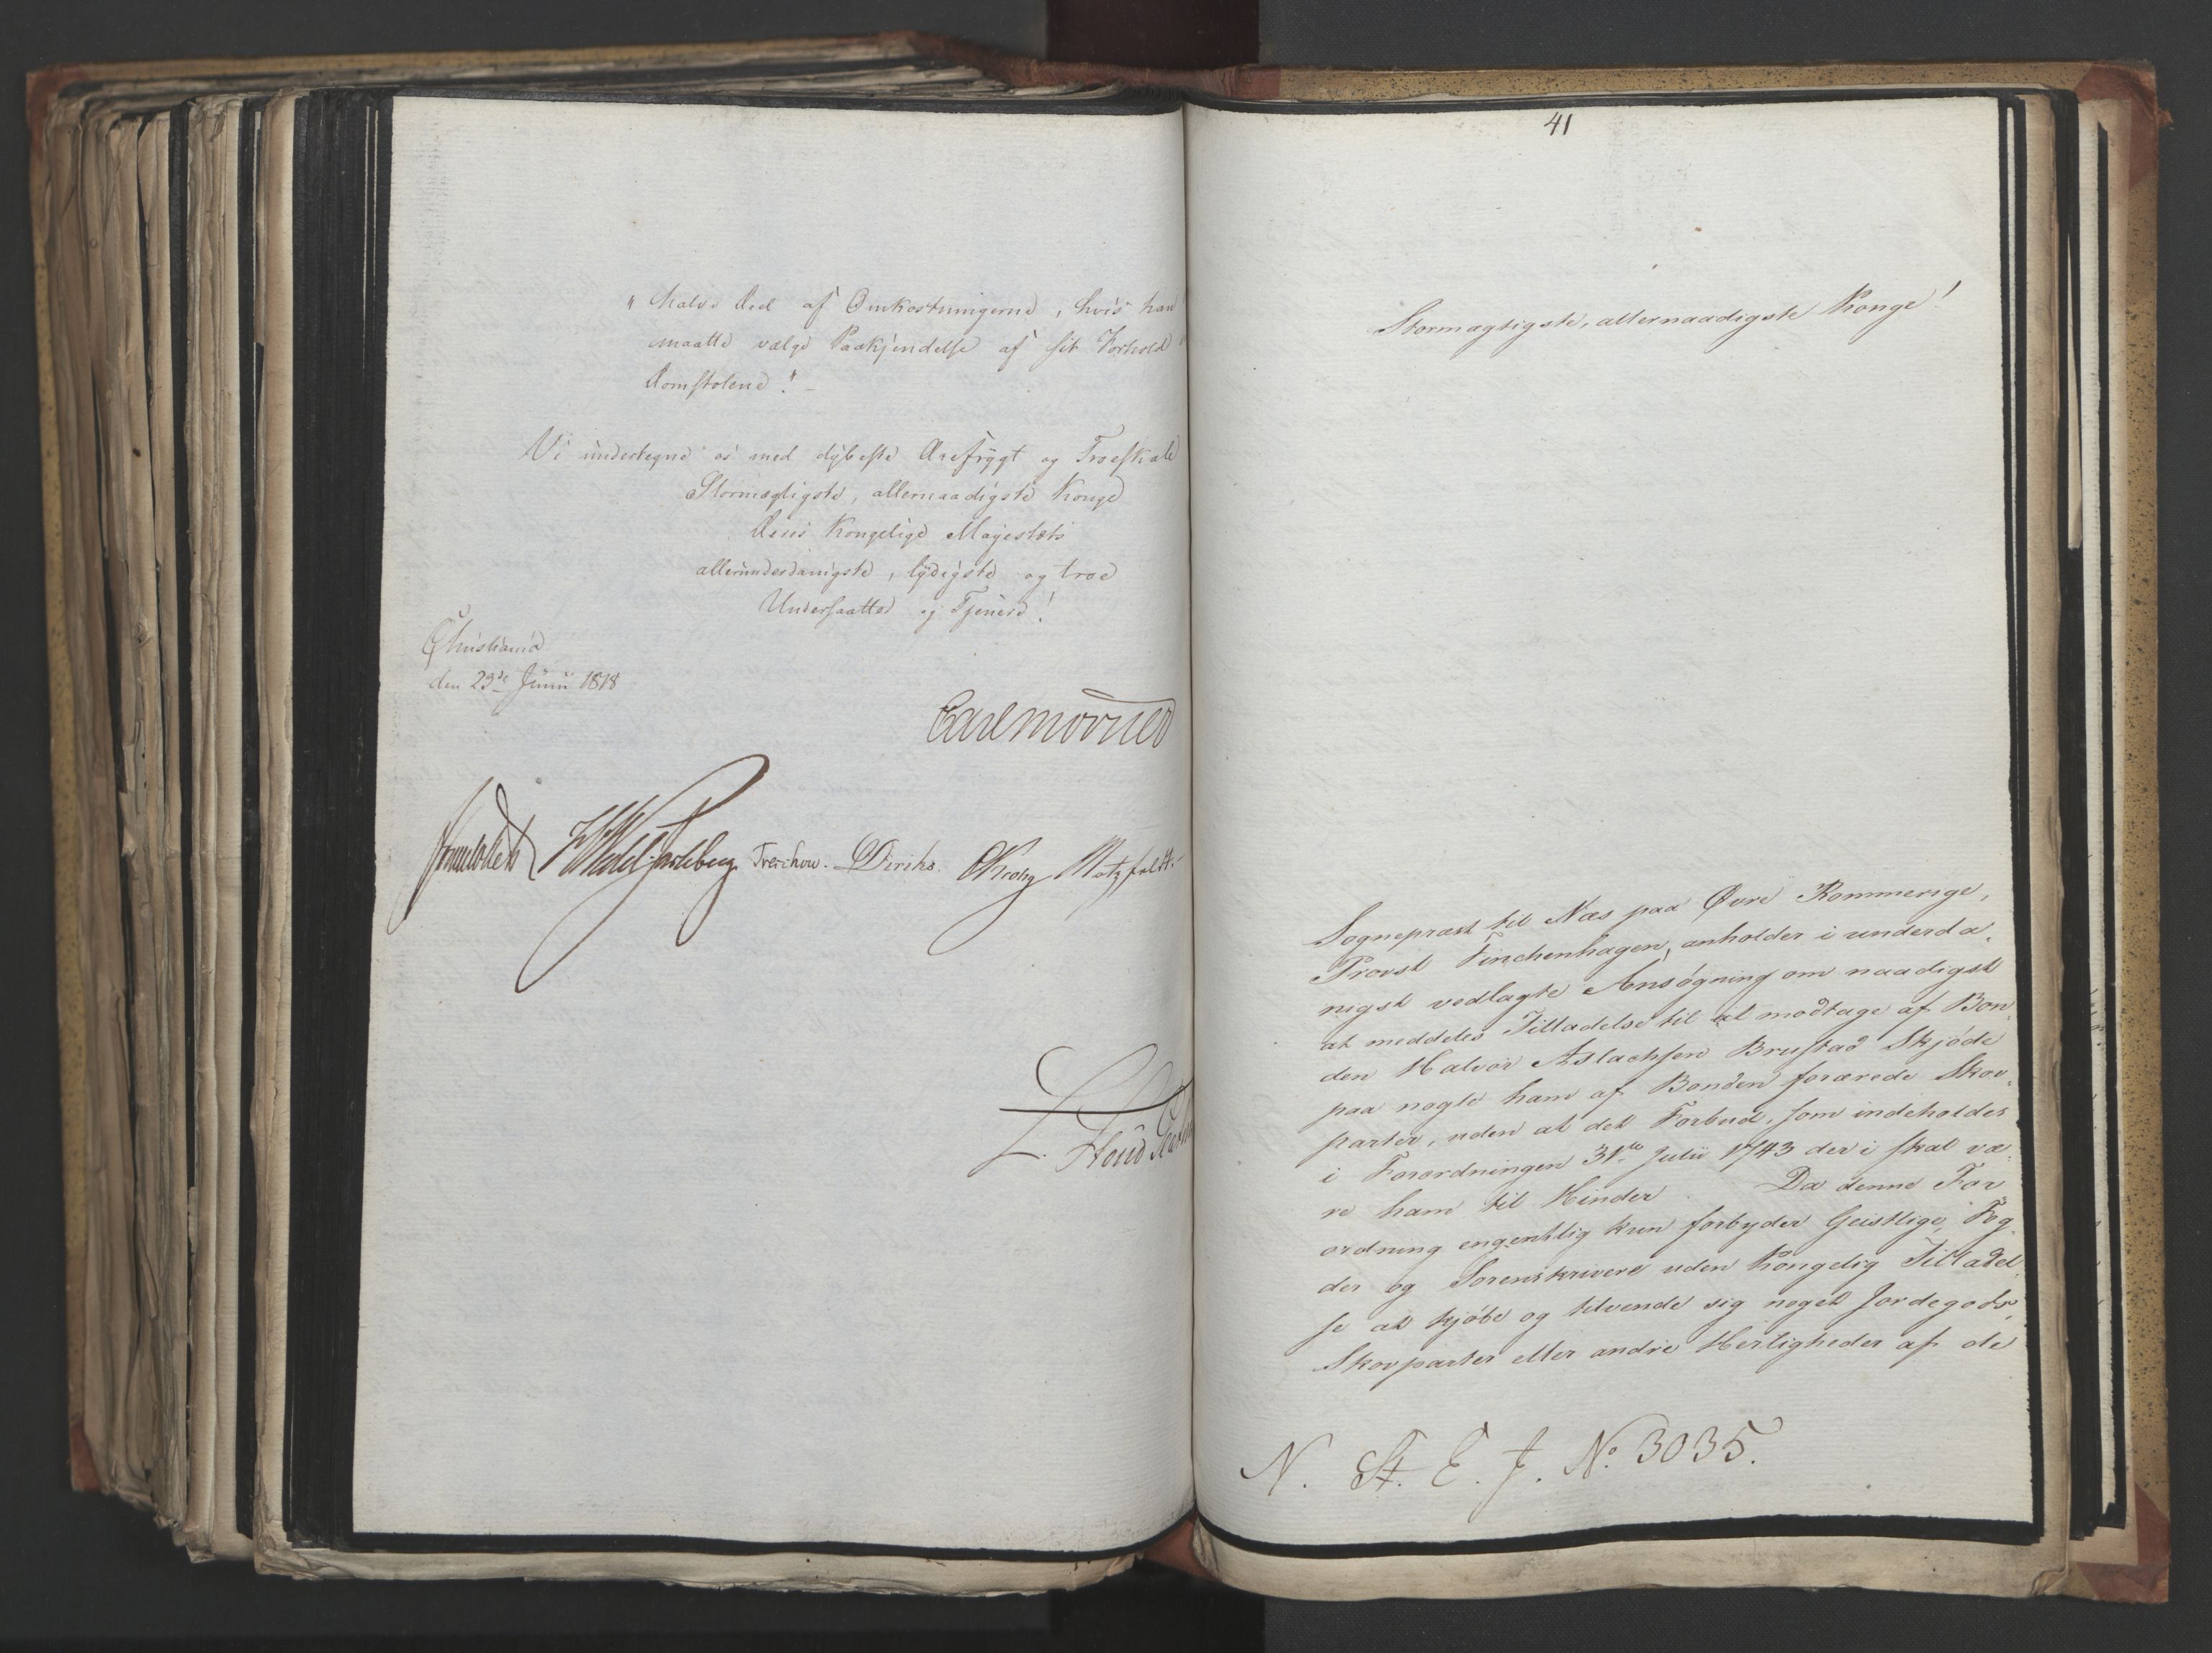 "halve Deel af Omkostningerne, hvis han
maatte vælge Paakjendelse af sit Forhold
Domstolene". –
Vi undertegne os med dybeste Ærefrygt og Troeskab
Stormægtigste, allernaadigste Konge
Deres Kongelige Majestæts
allerunderdanigste, lydigste og troe
Undersaatter og Tjenere!
Christiania
den 23de Junii 1818
Carl Mörner
Sommerhielm HWedel Jarlsberg Treschow. Diriks. CKrohg Motzfeldt.
L.
41
Stormægtigste, allernaadigste Konge!
Sognepræst til Næs paa Øvre Rommerige,
Provst Finchenhagen, anholder i underda-
nigst vedlagte Ansøgning om naadigst
at meddeles Tilladelse til at modtage af Bon-
den Halvor Aslachsen Brustad Skjøde
paa nogle ham af Bonden forærede Skov-
parter, uden at det Forbud, som indeholdes
i Forordningen 31te Julii 1743 deri skal væ-
re ham til Hinder. Da denne For-
ordning engentlig kun forbyder Geistlige, Fog-
der og Sorenskrivere uden Kongelig Tilladel-
se at kjøbe og tilvende sig noget Jordegods,
Skovparter eller andre Herligheder af de
N. St. E. J. No 3035.